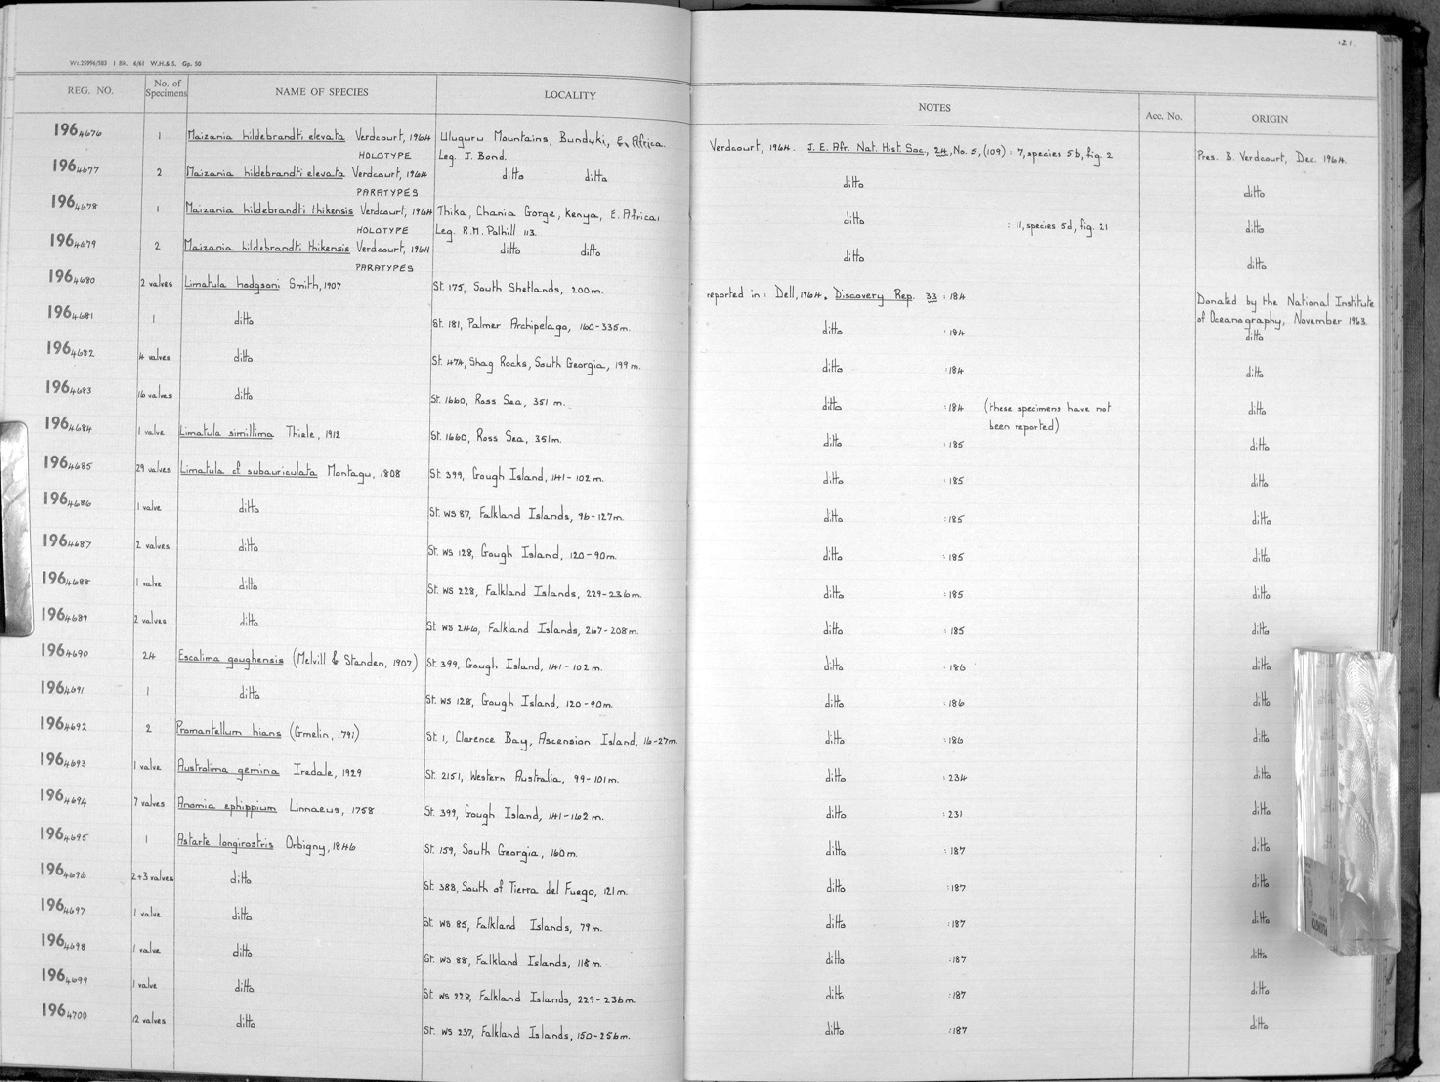 121.
Wt.29996/583 1 Bk. 6/61 W.H.&S. Gp. 50
REG. NO. No. of Specimens NAME OF SPECIES LOCALITY NOTES Acc. No. ORIGIN
1964676 1 Maizania hildebrandti elevata Verdcourt, 1964 Uluguru Mountains, Bunduki, E. Africa. Verdcourt, 1964. J. E. Afr. Nat. Hist Soc., 24, No. 5, (109) : 7, species 5b, fig. 2 Pres. B. Verdcourt, Dec. 1964.
HOLOTYPE Leg. I. Bond.
1964677 2 Maizania hildebrandti elevata Verdcourt, 1964 ditto ditto ditto ditto
PARATYPES
1964678 1 Maizania hildebrandti thikensis Verdcourt, 1964 Thika, Chania Gorge, Kenya, E. Africa, ditto : 11, species 5d, fig. 21 ditto
HOLOTYPE Leg. R.M. Polhill 113.
1964679 2 Maizania hildebrandti thikensis Verdcourt, 1964 ditto ditto ditto ditto
PARATYPES
1964680 2 valves Limatula hodgsoni Smith, 1907 St. 175, South Shetlands, 200m. reported in: Dell, 1964. Discovery Rep. 33 : 184 Donated by the National Institute
of Oceanography, November 1963.
1964681 1 ditto St. 181, Palmer Archipelago, 160-335m. ditto : 184 ditto
1964682 4 valves ditto St. 474, Shag Rocks, South Georgia, 199 m. ditto : 184 ditto
1964683 16 valves ditto St. 1660, Ross Sea, 351 m. ditto : 184 (these specimens have not ditto
been reported)
1964684 1 valve Limatula simillima Thiele, 1912 St. 1660, Ross Sea, 351m. ditto : 185 ditto
1964685 29 valves Limatula cf subauriculata Montagu, 1808 St. 399, Gough Island, 141-102m. ditto : 185 ditto
1964686 1 valve ditto St. WS 87, Falkland Islands, 96-127m. ditto : 185 ditto
1964687 2 valves ditto St. WS 128, Gough Island, 120-90m. ditto : 185 ditto
1964688 1 valve ditto St. WS 228, Falkland Islands, 229-236m. ditto : 185 ditto
1964689 2 valves ditto St. WS 246, Falkland Islands, 267-208m. ditto : 185 ditto
1964690 24 Escalima goughensis (Melvill & Standen, 1907) St. 399, Gough Island, 141-102 m. ditto : 186 ditto
1964691 1 ditto St. WS 128, Gough Island, 120-90m. ditto : 186 ditto
1964692 2 Promantellum hians (Gmelin, 791) St. 1, Clarence Bay, Ascension Island, 16-27m. ditto : 186 ditto
1964693 1 valve Australima gemina Iredale, 1929 St. 2151, Western Australia, 99-101m. ditto : 234 ditto
1964694 7 valves Anomia ephippium Linnaeus, 1758 St. 399, Gough Island, 141-162 m. ditto : 231 ditto
1964695 1 Astarte longirostris Orbigny, 1846 St. 159, South Georgia, 160m. ditto : 187 ditto
1964696 2+3 valves ditto St. 388, South of Tierra del Fuego, 121m. ditto : 187 ditto
1964697 1 valve ditto St. WS 85, Falkland Islands, 79m. ditto : 187 ditto
1964698 1 valve ditto St. WS 88, Falkland Islands, 118 m. ditto : 187 ditto
1964699 1 valve ditto St. WS Falkland Islands, 229-236m. ditto : 187 ditto
1964700 12 valves ditto St. WS 237, Falkland Islands, 150-256m. ditto : 187 ditto